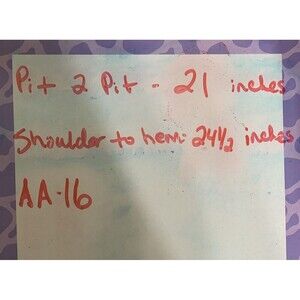 Pit 2 Pit - 21 inches
Shoulder to hem: 24 1/2 inches
AA-16